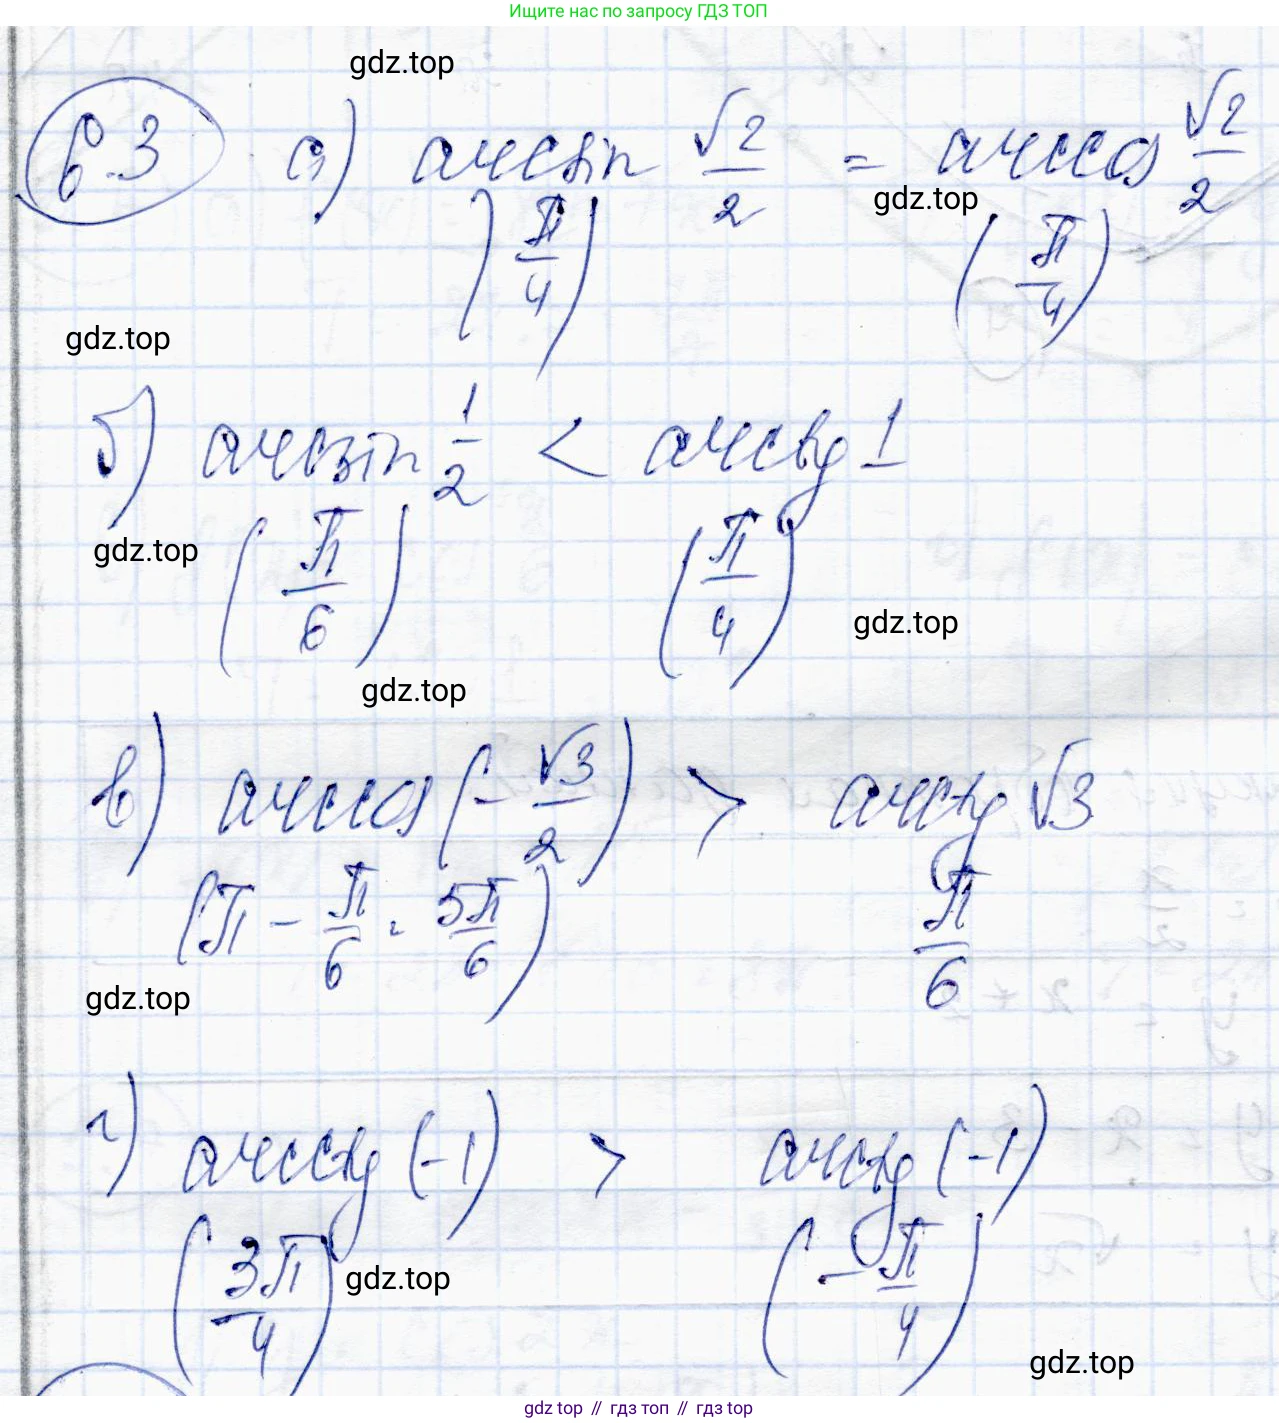 Ищите нас по запросу ГДЗ ТОП
gdz.top
6.3 а) arcsin √2/2 = arccos √2/2
gdz.top
(π/4) (π/4)
gdz.top
б) arcsin 1/2 < arctg 1
gdz.top
(π/6) (π/4)
gdz.top
gdz.top
в) arccos (-√3/2) > arctg √3
(π - π/6 = 5π/6) π/6
gdz.top
г) arcctg (-1) > arctg (-1)
(3π/4) (-π/4)
gdz.top
gdz.top
gdz top // гдз топ // гдз top